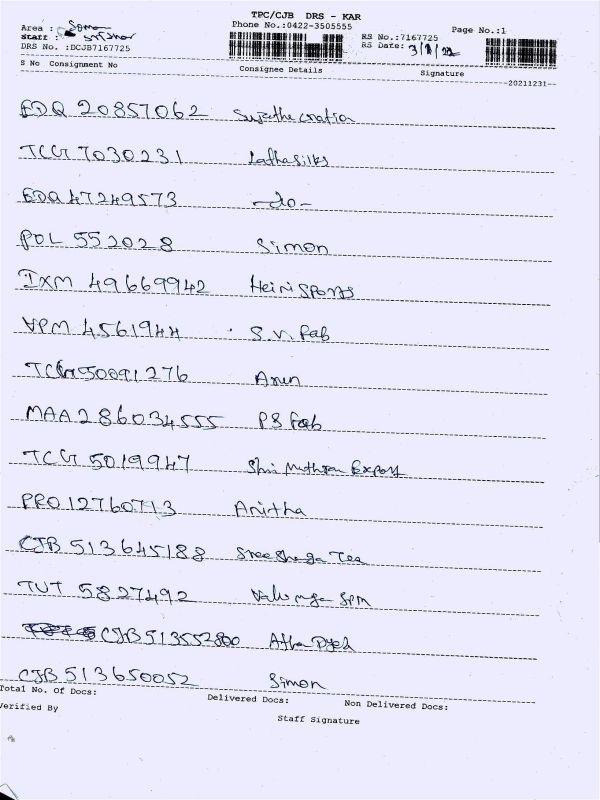 TPC/CJB DRS - KAR
Phone No.:0422-3505555
Area :
Staff :
DRS No. :DCJB7167725
RS No.:7167725
RS Date: 3/1/22
Page No.:1
S No Consignment No Consignee Details Signature
--20211231--
EDQ 20857062
TCG 7030231 Latha silks
EDQ 47249573 -do-
POL 552028 Simon
IXM 49669942 Heini Sports
VPM 4561944 S.V. Fab
TCG 50091276 Arun
MAA 286034555 PS Fab
TCG 5019947 Shri Export
PRO 12760713 Anitha
CJB 513645188 Sree Tea
TUT 5827492 SPM
CJB 513552800
CJB 513650052 Simon
Total No. Of Docs: Delivered Docs: Non Delivered Docs:
Verified By Staff Signature